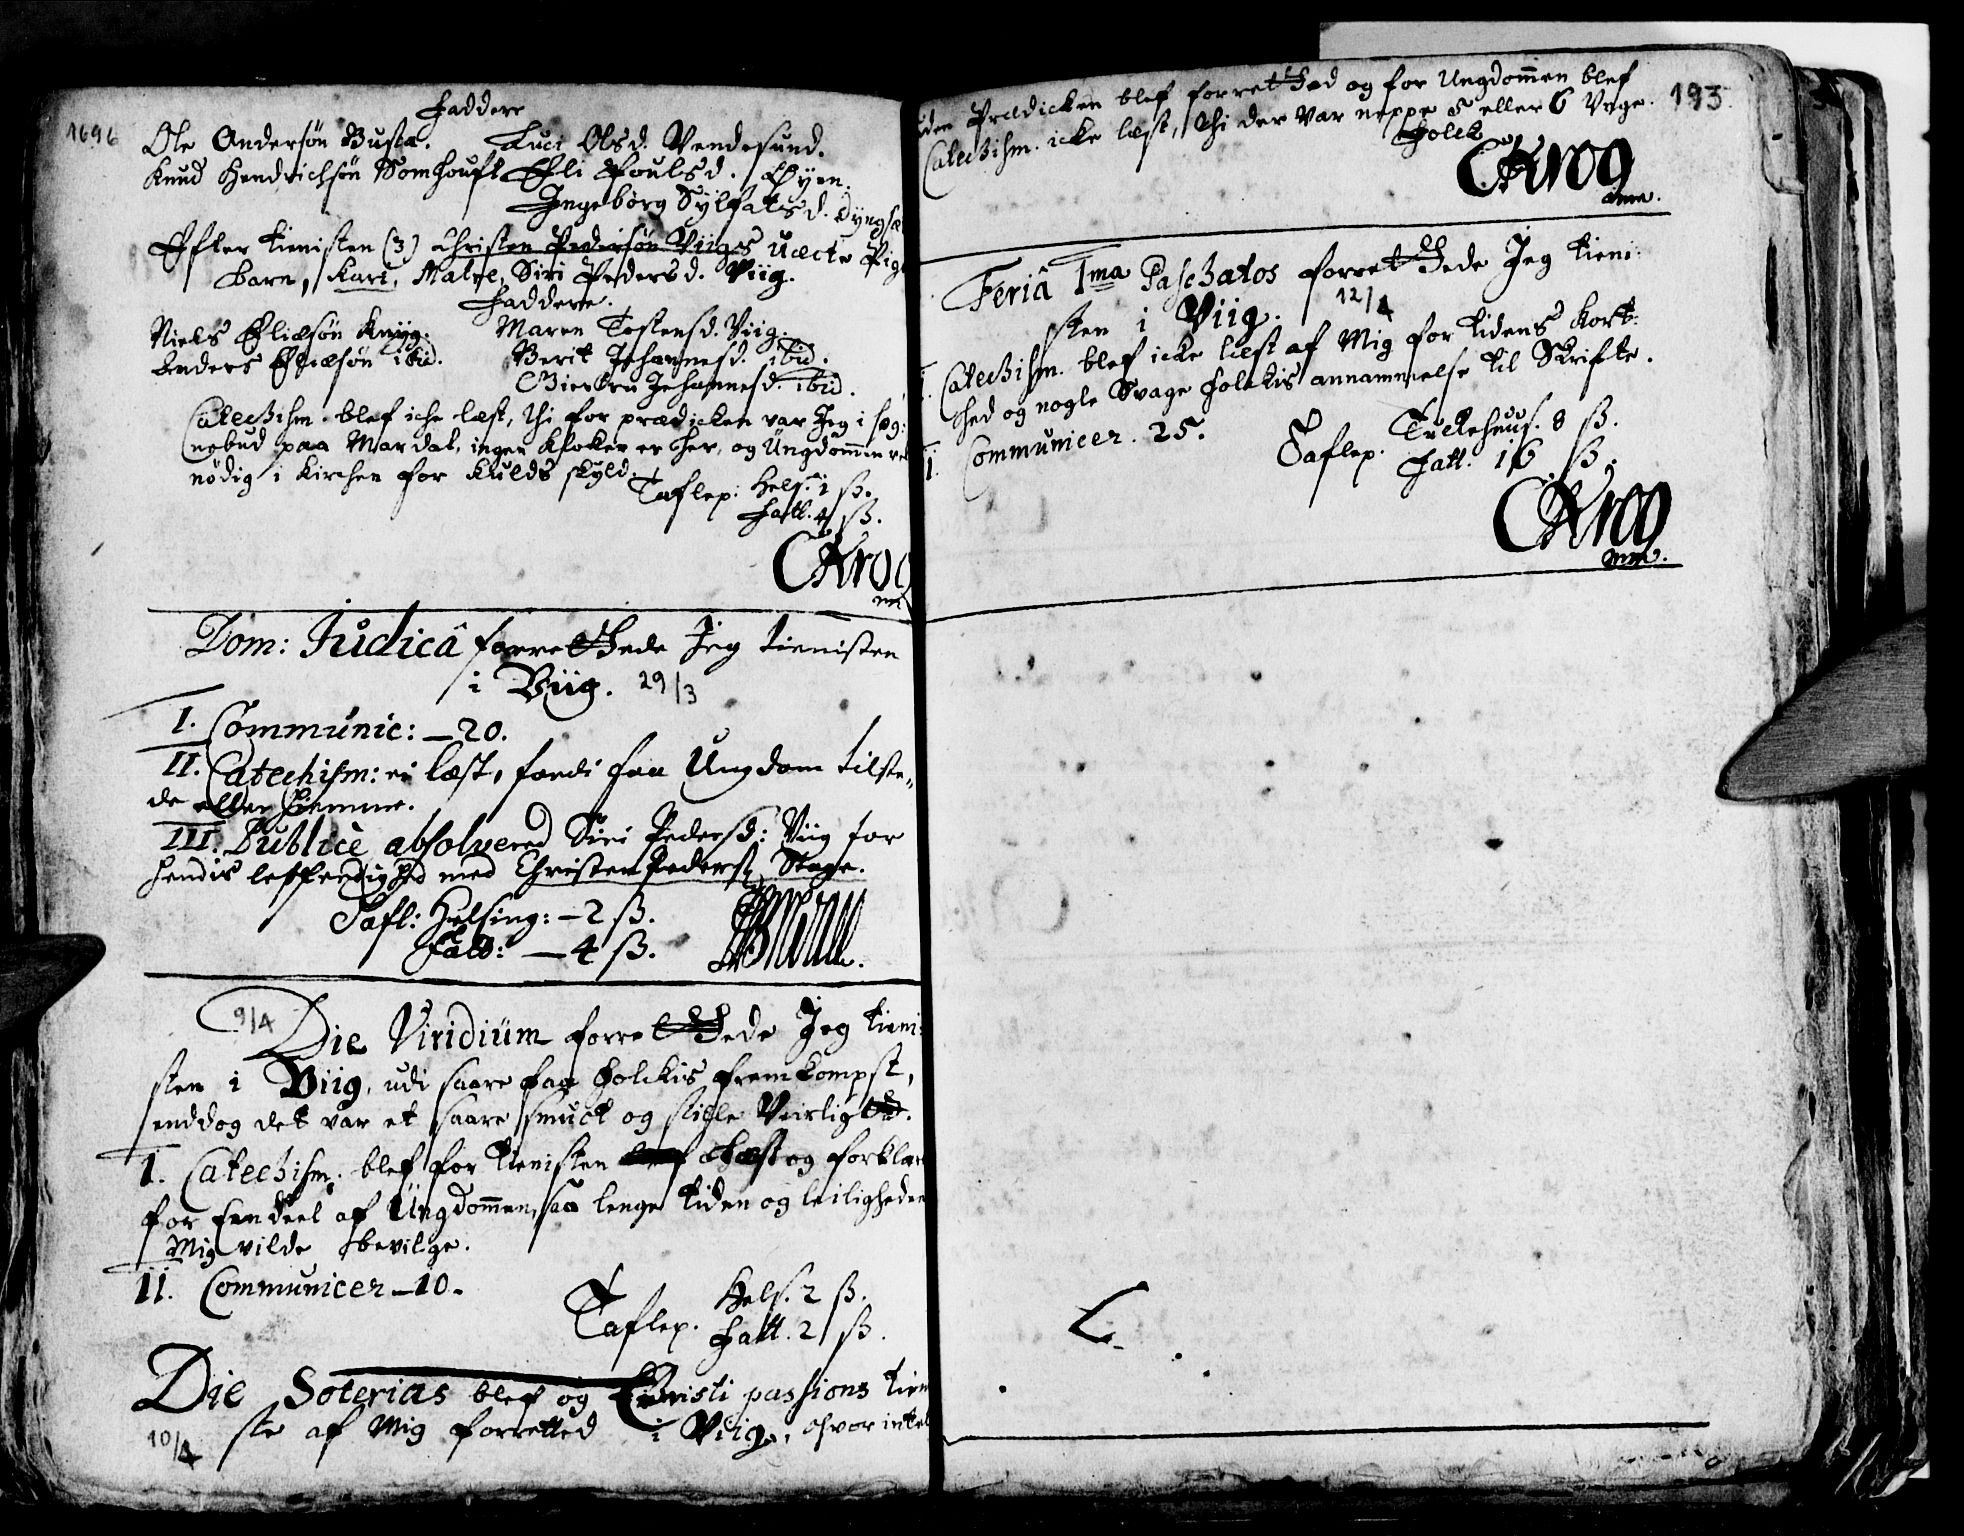 1696
Faddere
Ole Andersøn Busta. Luci Olsd. Vendesund.
Knud Hendrichsøn Somhouft Eli Poulsd. Øyen.
Ingebørg Sylfastsd.
Efter tienisten (3) Christen Pedersøn Viigs uæcte Pige
barn, Kari, Matre, Siri Pedersd. Viig.
Faddere.
Niels Eliæsøn Knyg. Maren Tostensd. Viig.
Anders Eliæsøn ibid. Berit Johannesd. ibid.
Johannesd. ibid.
Catechism. blef iche læst, thi for prædicken var Jeg i sog:
nebud paa Mardal, ingen Klocker er her, og Ungdommen
nödig i Kirchen for Kulds skyld.
Taflep: Hels. 1 ß.
Fatt. 4 ß.
CKrog
Dom: Judicâ forrettede Jeg tienisten
i Viig. 29/3
I. Communic: – 20.
II. Catechism: ei læst, fordi faa Ungdom tilste„
de eller hiemme.
III. Publicè absolvered Siri Pedersd: Viig for
hendis letferdighed med Christen Peders: Stage.
Tafl: Helsing: – 2 ß.
Fatt: – 4 ß.
9/4
Die Viridium forrettede Jeg tieni:
sten i Viig, udi saare faa folckis fremkompst,
enddog det var et saare smuck og stille Veirligt.
I. Catechism. blef for tienisten læst og forklar
for Een deel af Ungdommen, saa lenge tiden og leiligheden
Mig vilde bevilge.
II. Communicer – 10.
Taflep. Hels. 2 ß.
Fatt. 2 ß.
Die Soterias blef og Christi passions tien
10/4 ste af Mig forretted i Viig, hvor intet
uden Prædicken blef forretted og for Ungdommen blef 193
Catechism. icke læst, thi der var neppe 5 eller 6 Unge.
folck
CKrog
Feriâ 1ma Paschatos forrettede Jeg tieni:
sten i Viig. 12/4
I. Catechism. blef icke læst af Mig for tidens kort:
hed og nogle Svage folckis annammelse til Skrifte.
II. Communicer. 25.
Taflep. 8 ß.
Fatt. 16 ß.
CKrog